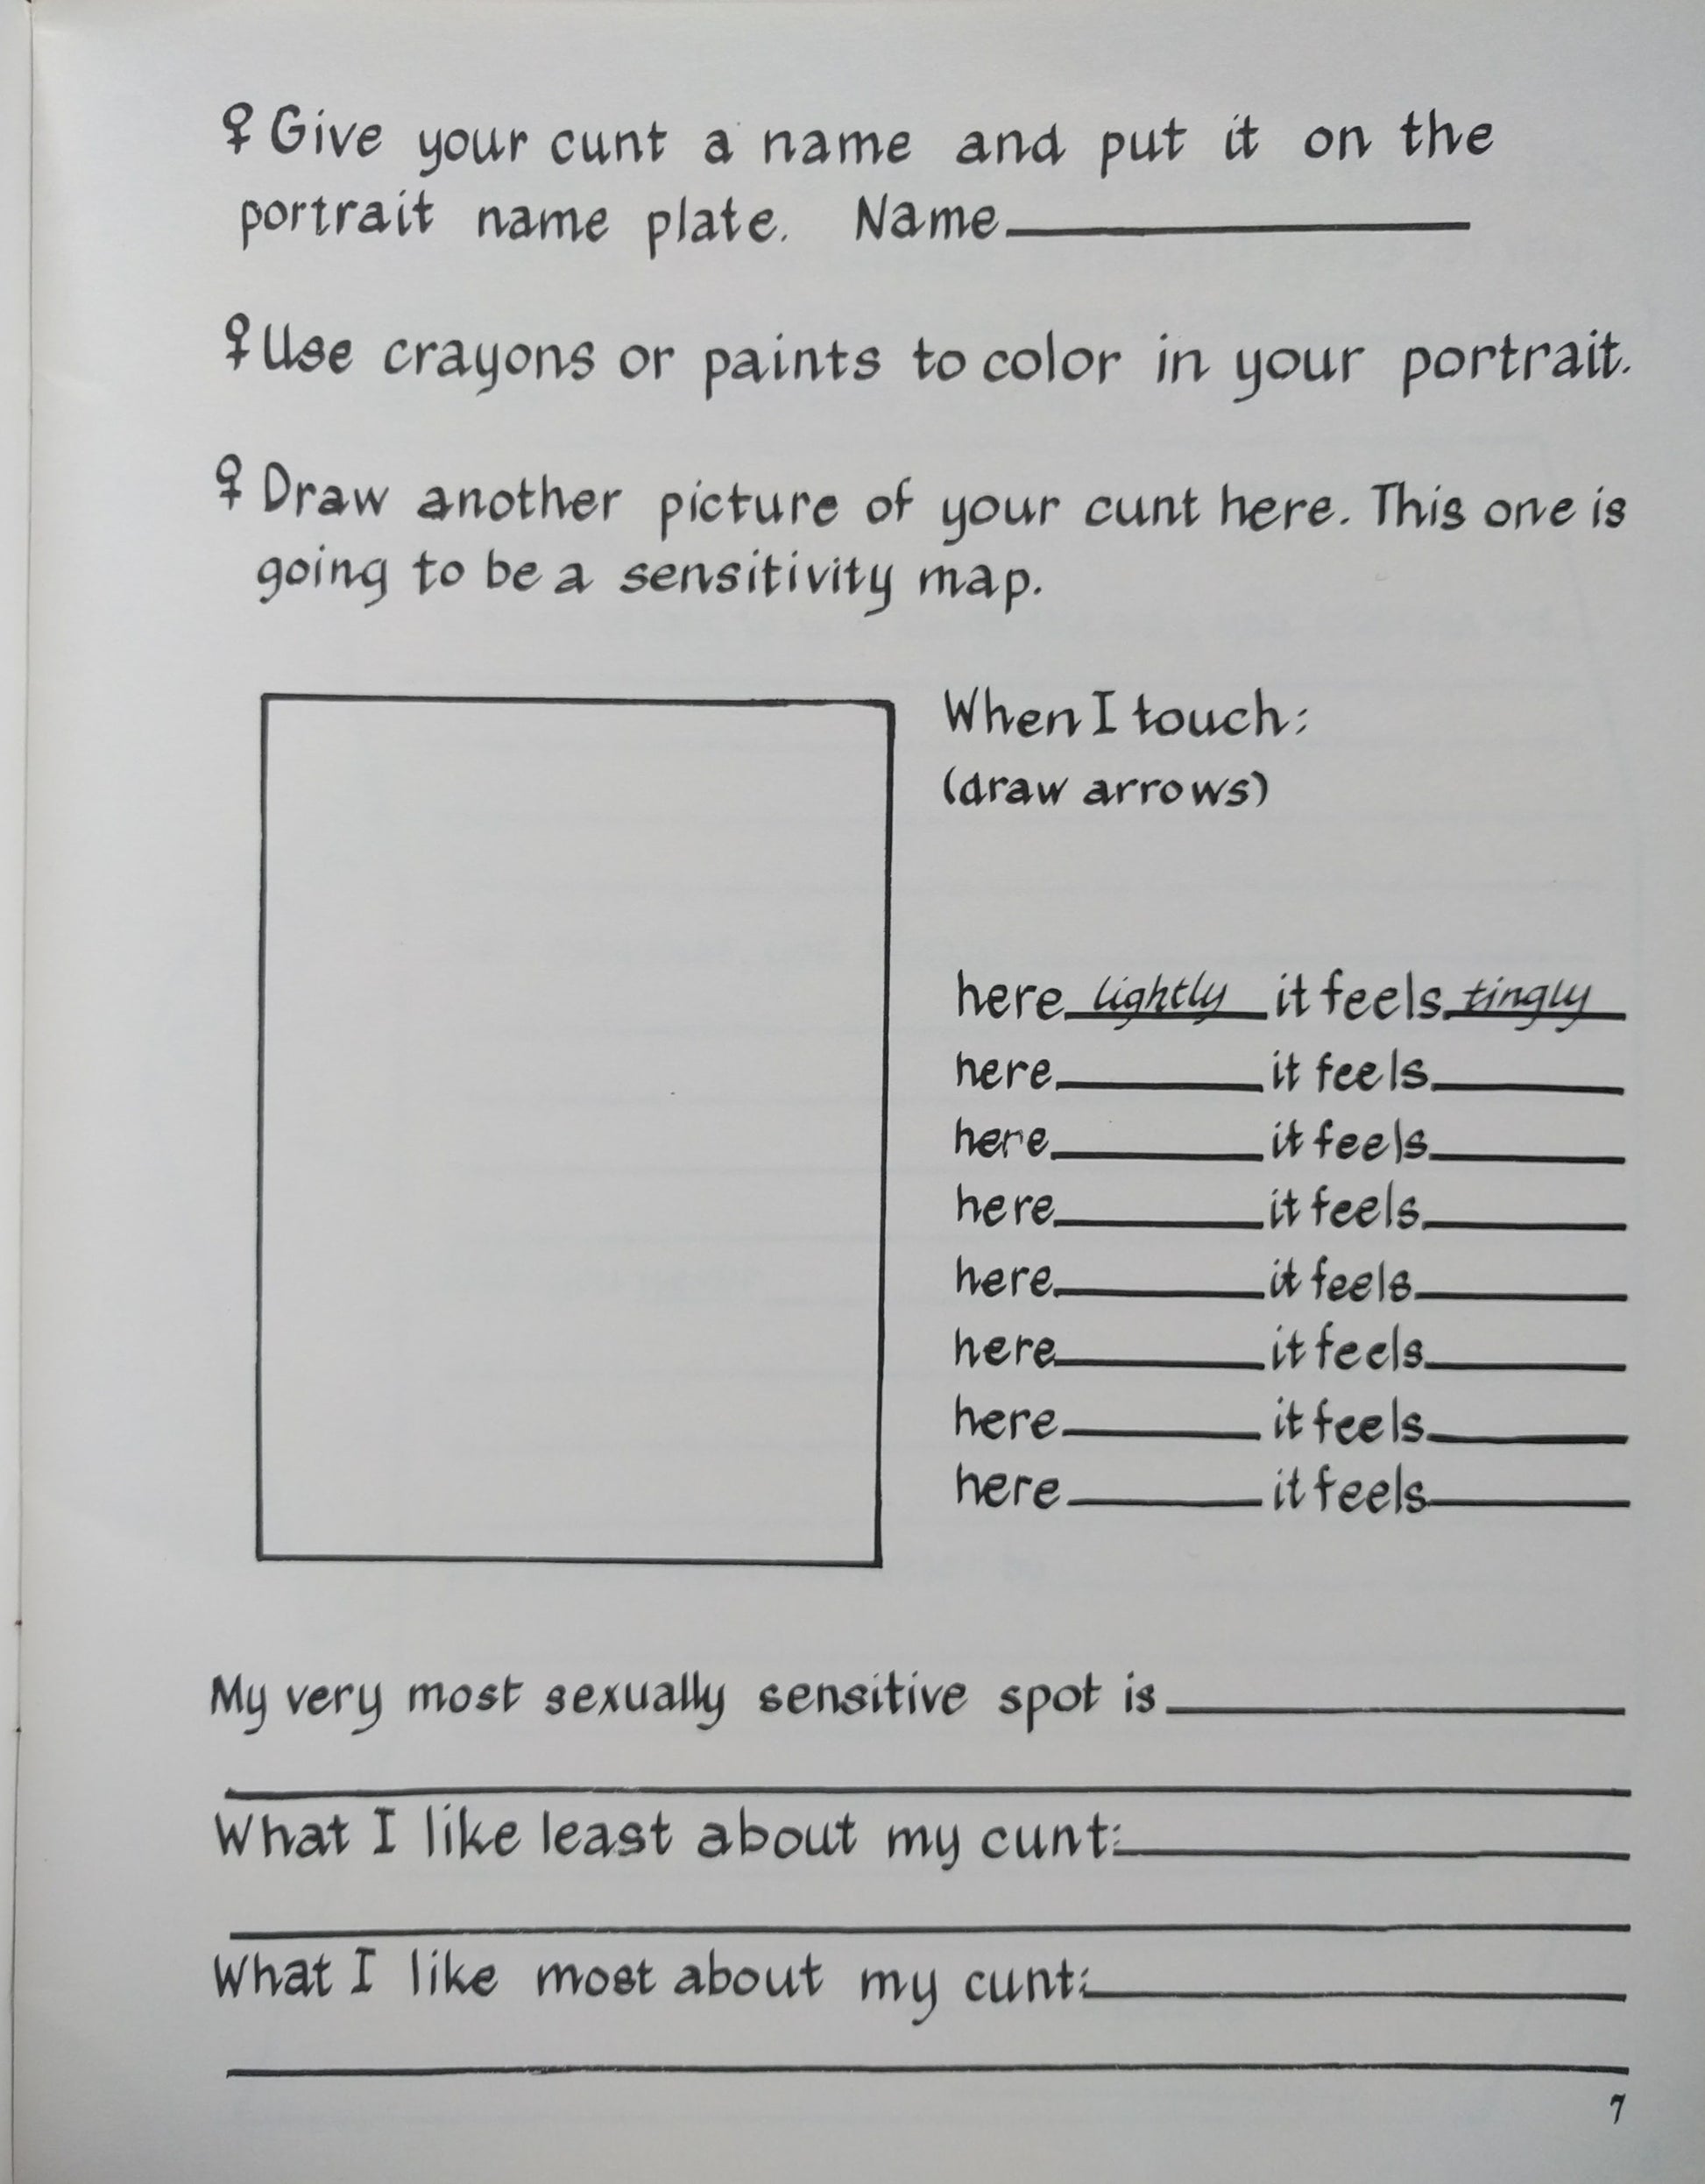 ♀ Give your cunt a name and put it on the
portrait name plate. Name
♀ Use crayons or paints to color in your portrait.
♀ Draw another picture of your cunt here. This one is
going to be a sensitivity map.
When I touch:
(draw arrows)
here lightly it feels tingly
here it feels
here it feels
here it feels
here it feels
here it feels
here it feels
here it feels
My very most sexually sensitive spot is
What I like least about my cunt:
What I like most about my cunt:
7